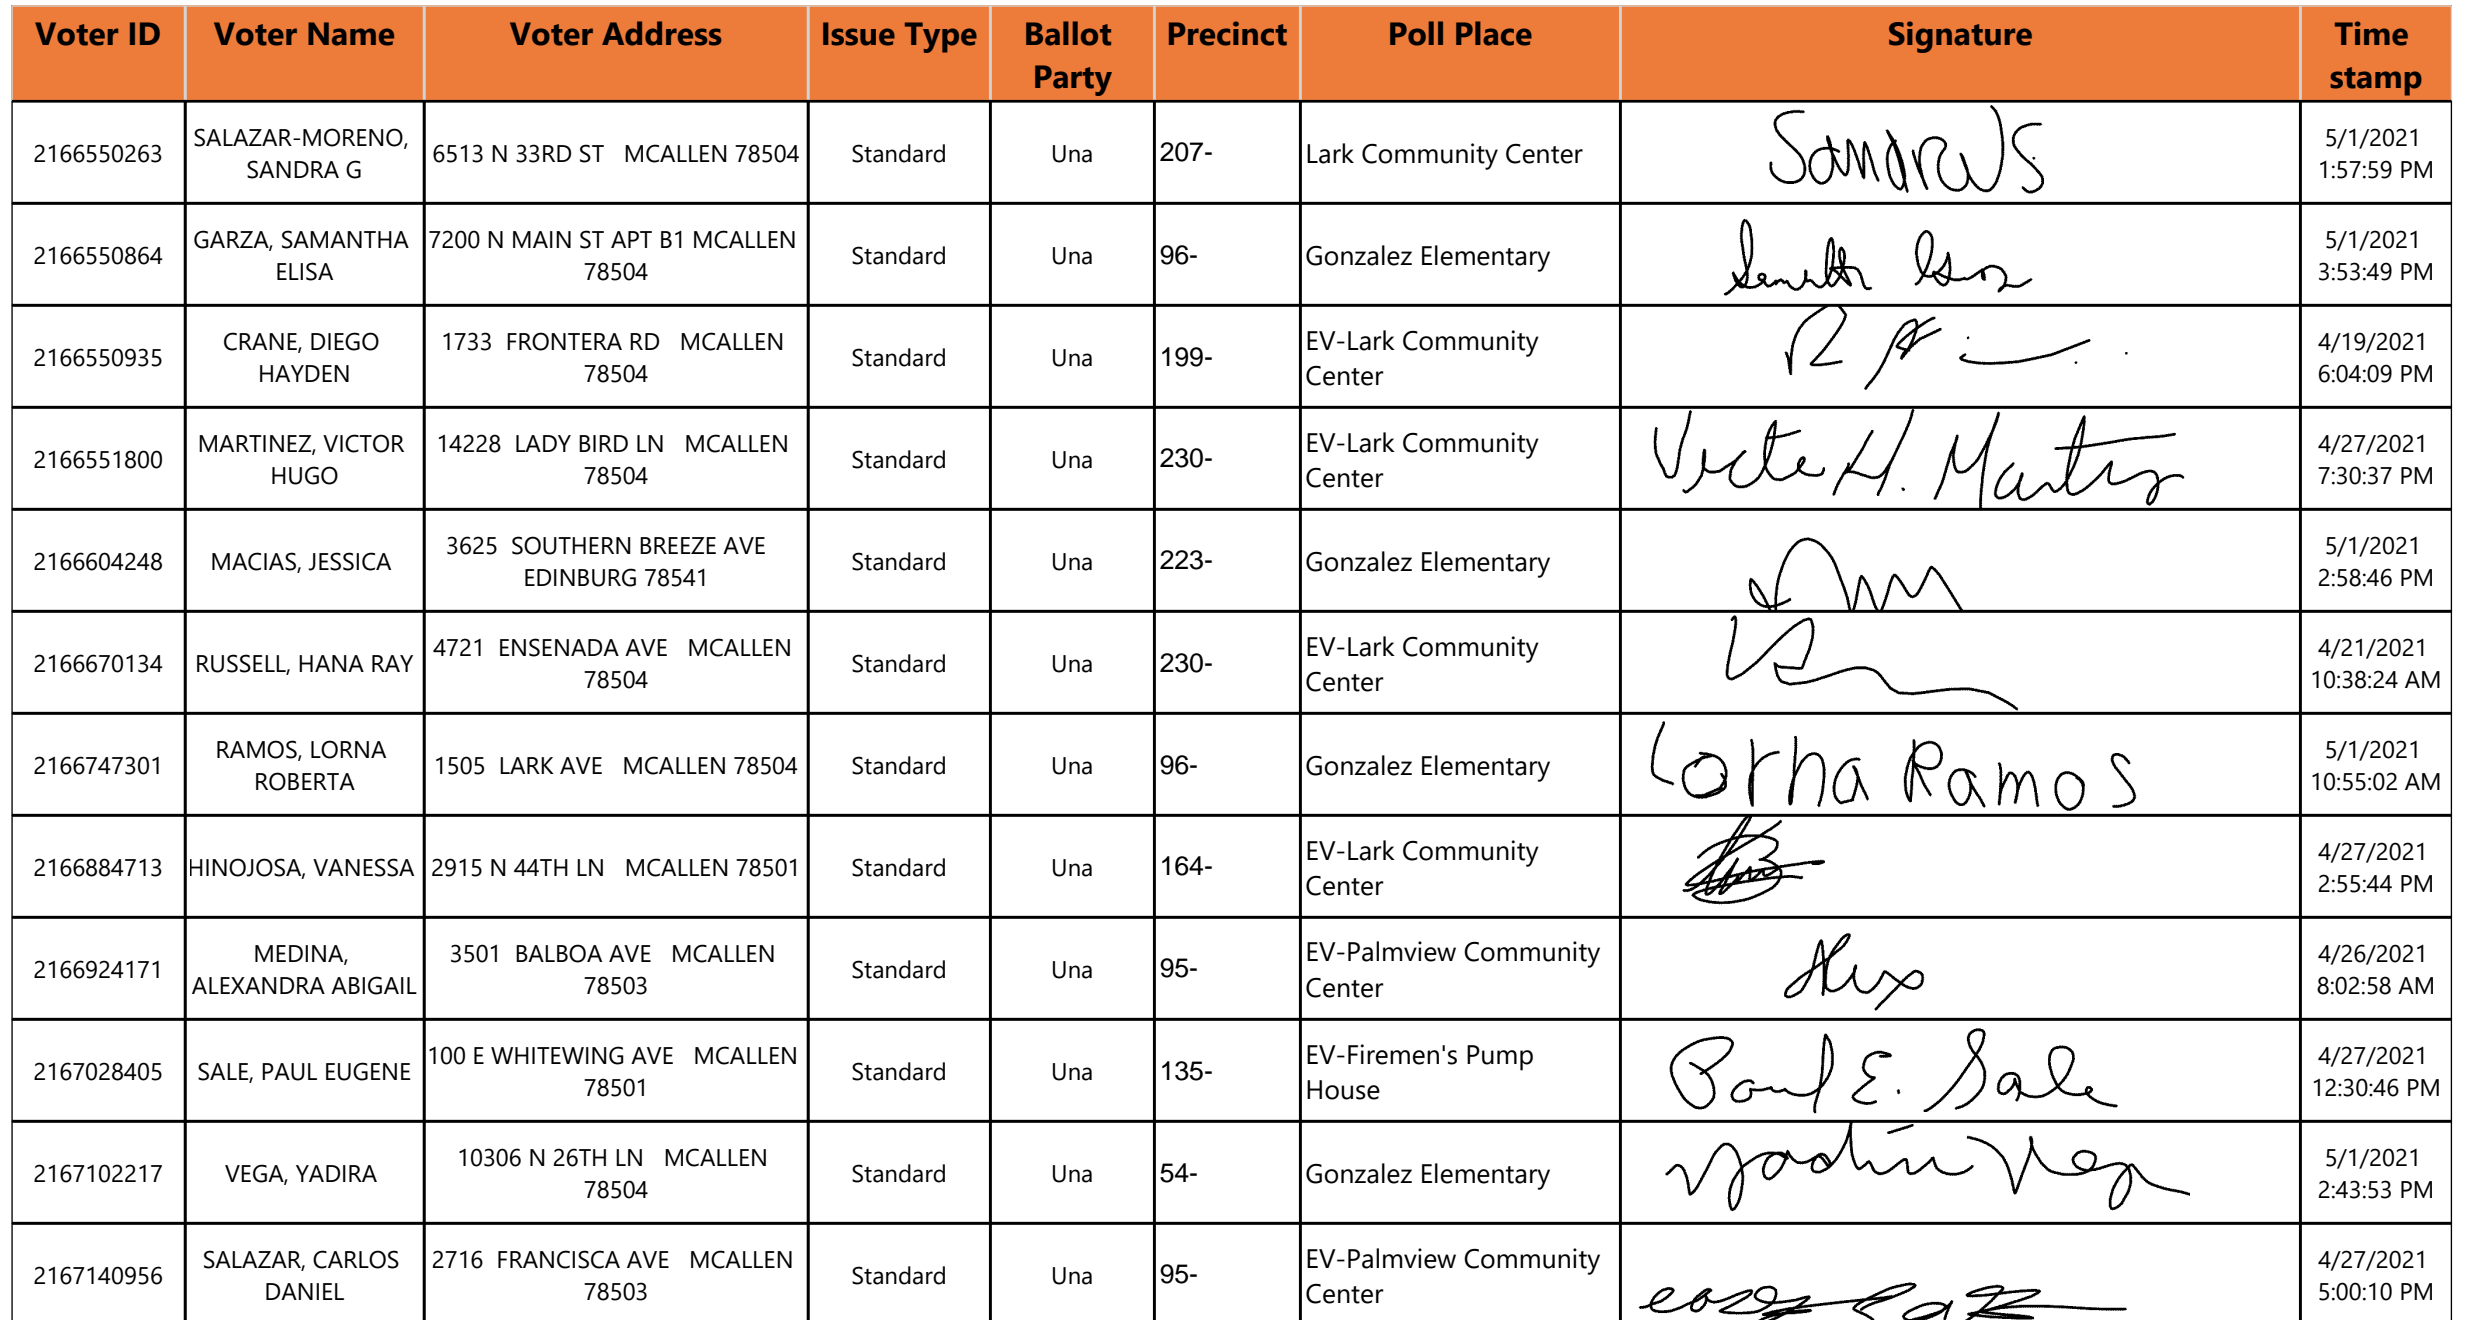 Voter ID Voter Name Voter Address Issue Type Ballot Party Precinct Poll Place Signature Time stamp
2166550263 SALAZAR-MORENO, SANDRA G 6513 N 33RD ST MCALLEN 78504 Standard Una 207- Lark Community Center Sandra S 5/1/2021 1:57:59 PM
2166550864 GARZA, SAMANTHA ELISA 7200 N MAIN ST APT B1 MCALLEN 78504 Standard Una 96- Gonzalez Elementary 5/1/2021 3:53:49 PM
2166550935 CRANE, DIEGO HAYDEN 1733 FRONTERA RD MCALLEN 78504 Standard Una 199- EV-Lark Community Center 4/19/2021 6:04:09 PM
2166551800 MARTINEZ, VICTOR HUGO 14228 LADY BIRD LN MCALLEN 78504 Standard Una 230- EV-Lark Community Center Victor H. Martinez 4/27/2021 7:30:37 PM
2166604248 MACIAS, JESSICA 3625 SOUTHERN BREEZE AVE EDINBURG 78541 Standard Una 223- Gonzalez Elementary 5/1/2021 2:58:46 PM
2166670134 RUSSELL, HANA RAY 4721 ENSENADA AVE MCALLEN 78504 Standard Una 230- EV-Lark Community Center 4/21/2021 10:38:24 AM
2166747301 RAMOS, LORNA ROBERTA 1505 LARK AVE MCALLEN 78504 Standard Una 96- Gonzalez Elementary Lorna Ramos 5/1/2021 10:55:02 AM
2166884713 HINOJOSA, VANESSA 2915 N 44TH LN MCALLEN 78501 Standard Una 164- EV-Lark Community Center 4/27/2021 2:55:44 PM
2166924171 MEDINA, ALEXANDRA ABIGAIL 3501 BALBOA AVE MCALLEN 78503 Standard Una 95- EV-Palmview Community Center Alex 4/26/2021 8:02:58 AM
2167028405 SALE, PAUL EUGENE 100 E WHITEWING AVE MCALLEN 78501 Standard Una 135- EV-Firemen's Pump House Paul E. Sale 4/27/2021 12:30:46 PM
2167102217 VEGA, YADIRA 10306 N 26TH LN MCALLEN 78504 Standard Una 54- Gonzalez Elementary Yadira Vega 5/1/2021 2:43:53 PM
2167140956 SALAZAR, CARLOS DANIEL 2716 FRANCISCA AVE MCALLEN 78503 Standard Una 95- EV-Palmview Community Center 4/27/2021 5:00:10 PM